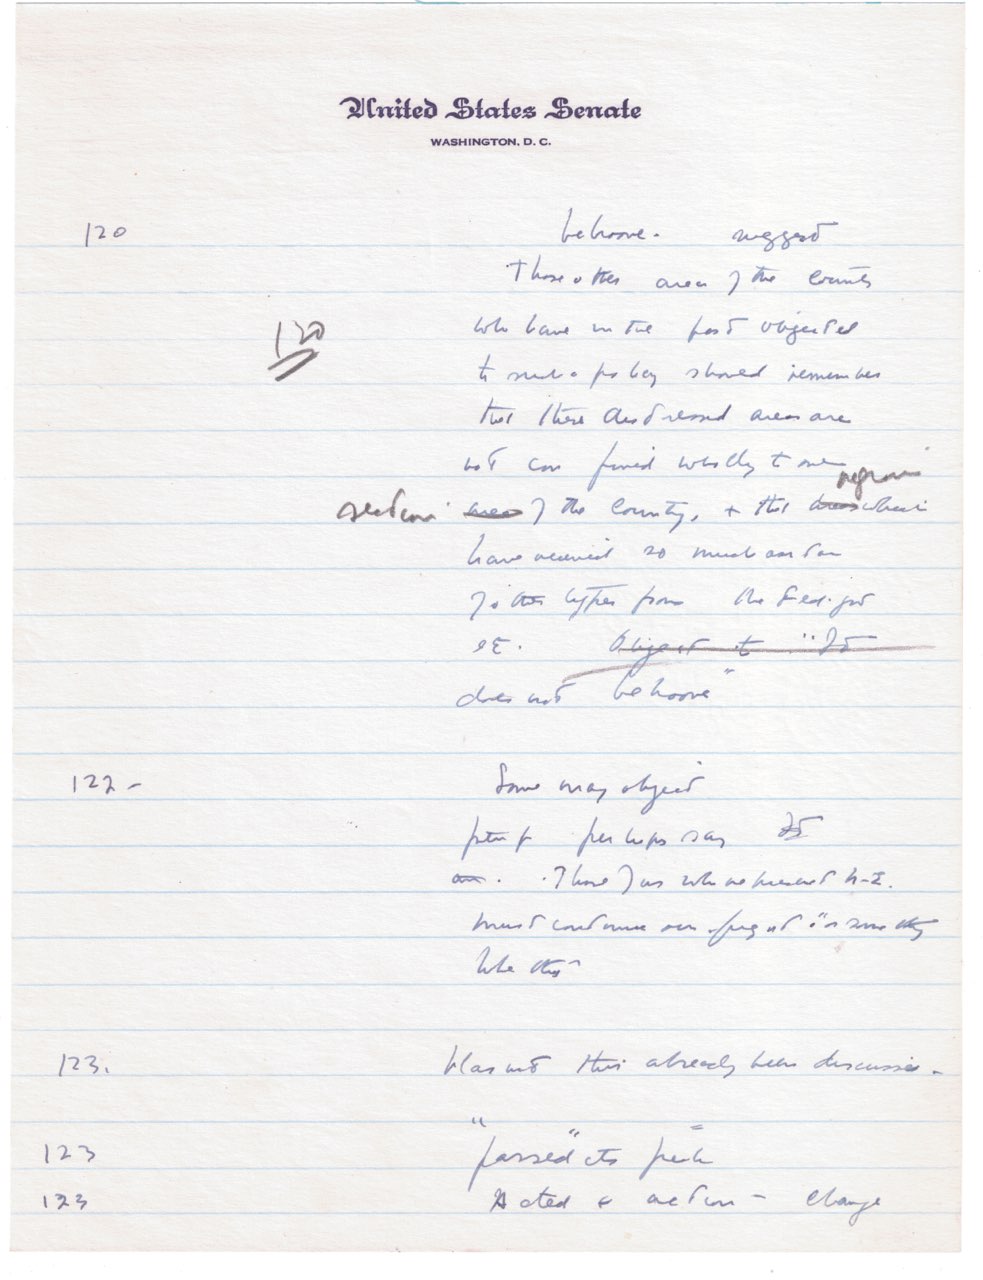 United States Senate
WASHINGTON, D. C.
120 behoove. suggest
Those other area of the County
120 who have in the past objected
to such a policy should remember
that these distressed areas are
not confined wholly to one
regions
section area of the County, + that areas which
have received so much
of other types from the Fed. gvt
Object to "It
does not behoove"
122 - Some may object
perhaps say It
Those of us who represent N-E.
must continue our fight "or something
like this"
123. Has not this already been discussed -
123 "passed" its peak
123 Acted & action - change